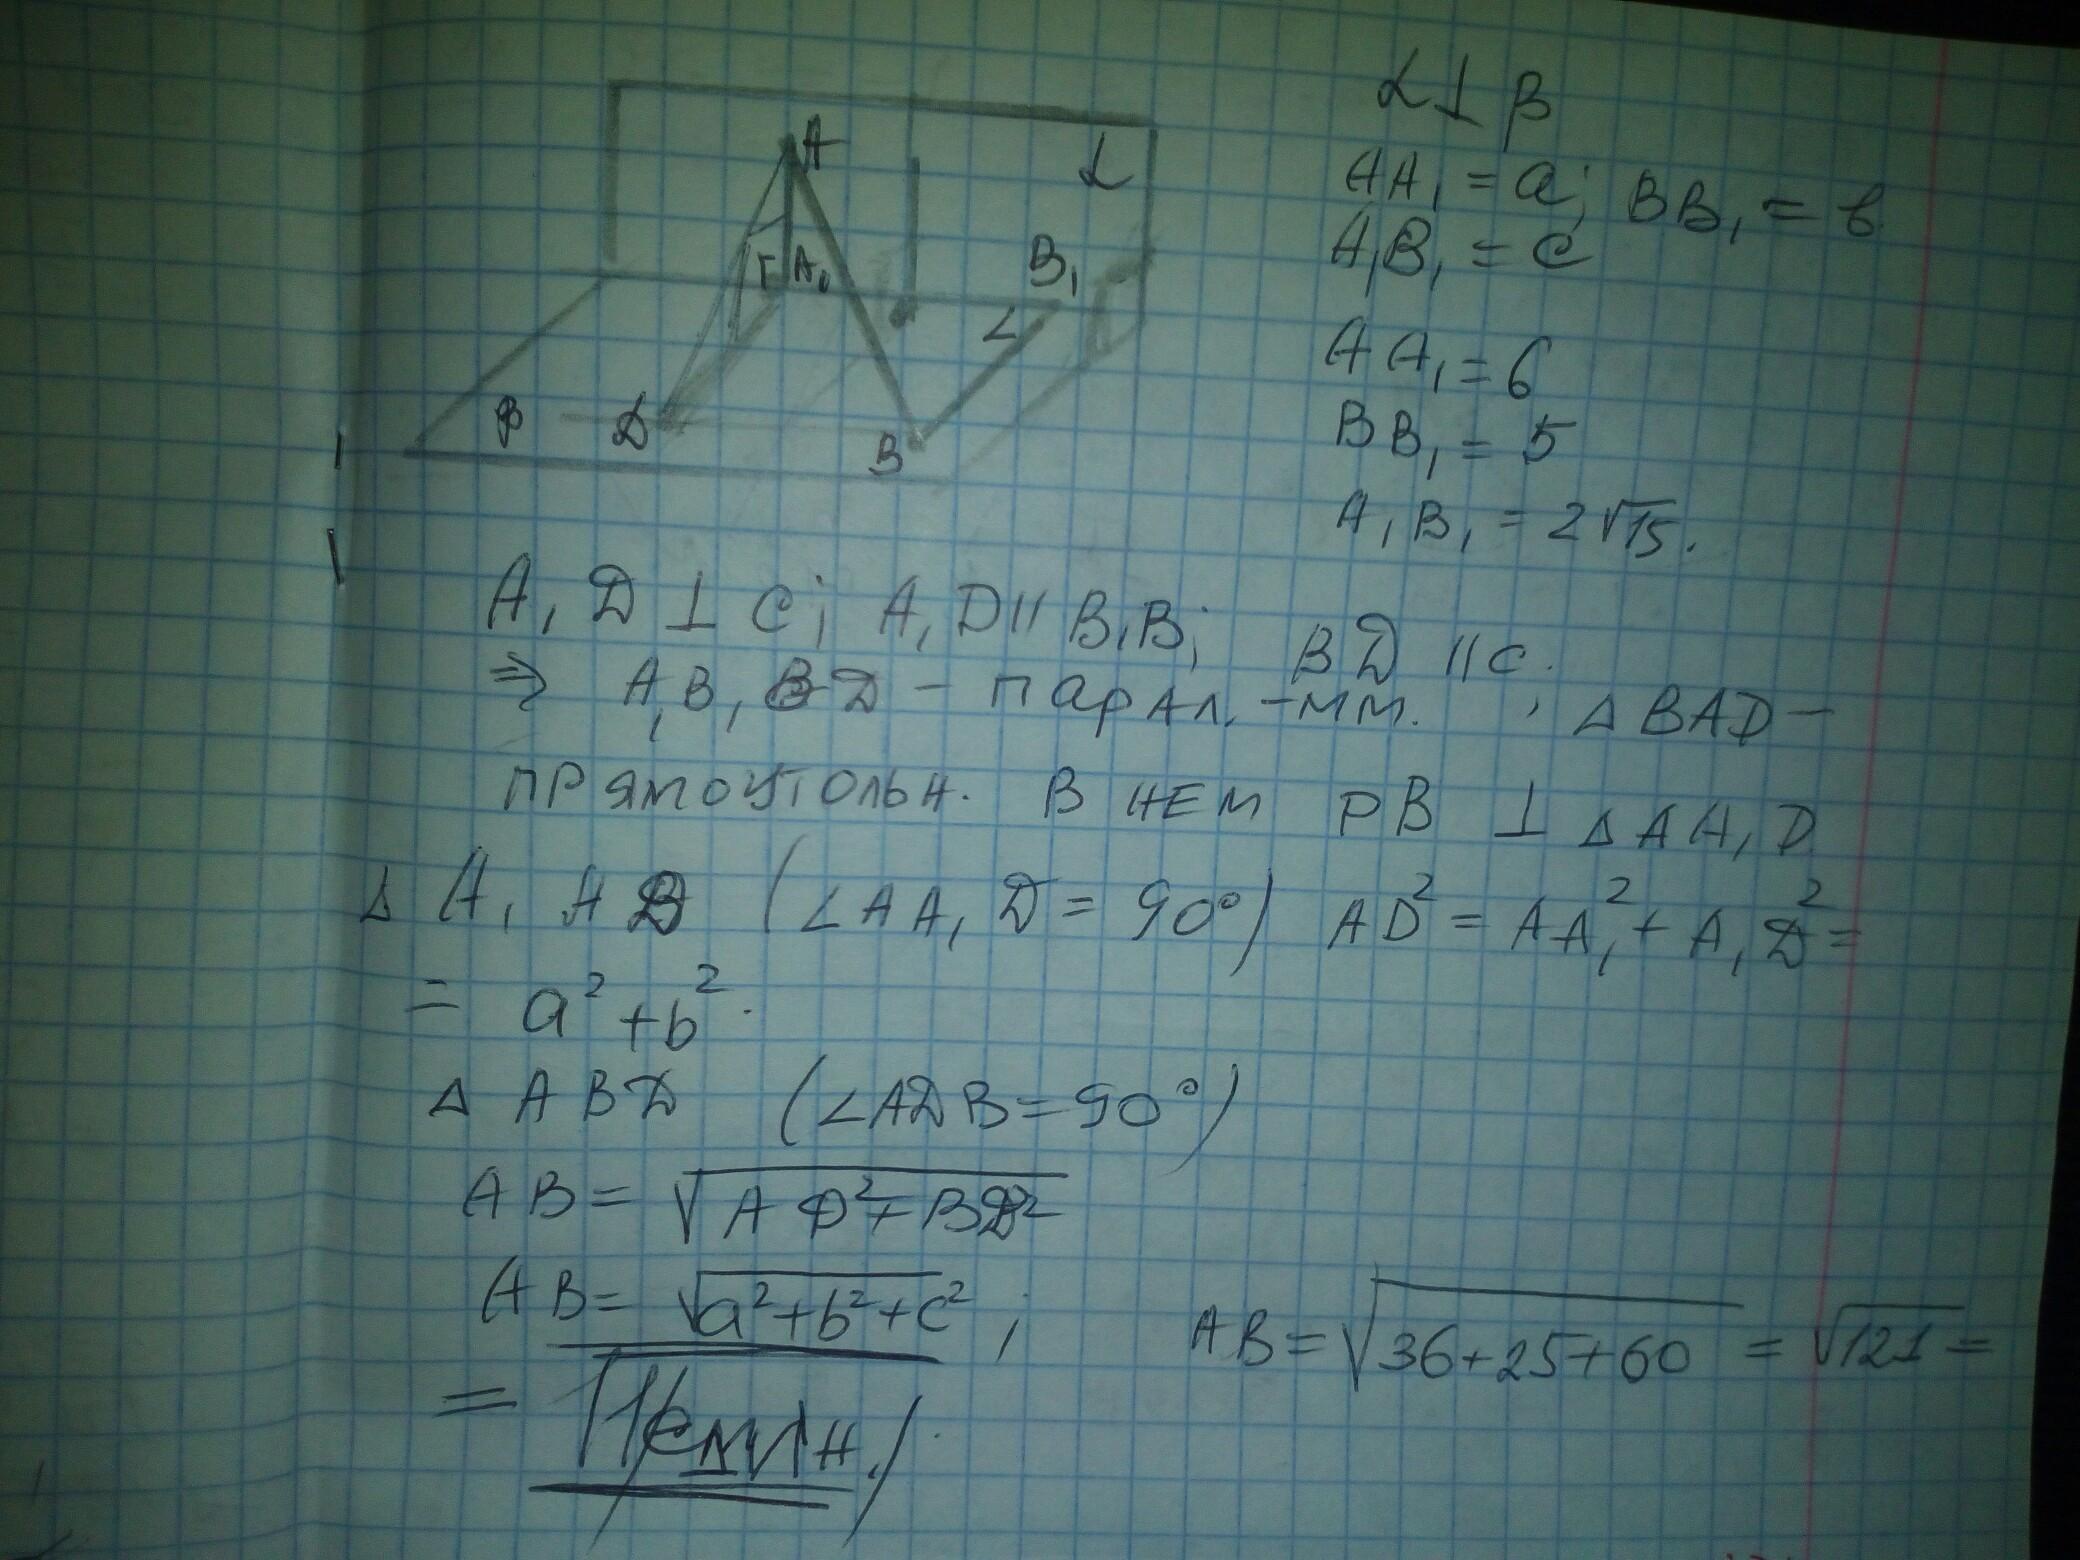 A
α
A₁
B₁
β
D
B
α ⊥ β
AA₁ = a; BB₁ = в
A₁B₁ = c
AA₁ = 6
BB₁ = 5
A₁B₁ = 2√15.
A₁D ⊥ c; A₁D ∥ B₁B; BD ∥ c.
⇒ A₁B₁BD – парал.-мм. ; △BAD –
прямоугольн. В нем DB ⊥ △AA₁D
△ A₁AD (∠AA₁D = 90°) AD² = AA₁² + A₁D² =
= a² + b².
△ ABD (∠ADB = 90°)
AB = √AD² + BD²
AB = √a² + b² + c² ; AB = √36 + 25 + 60 = √121 =
= 11 (ед. дл.)